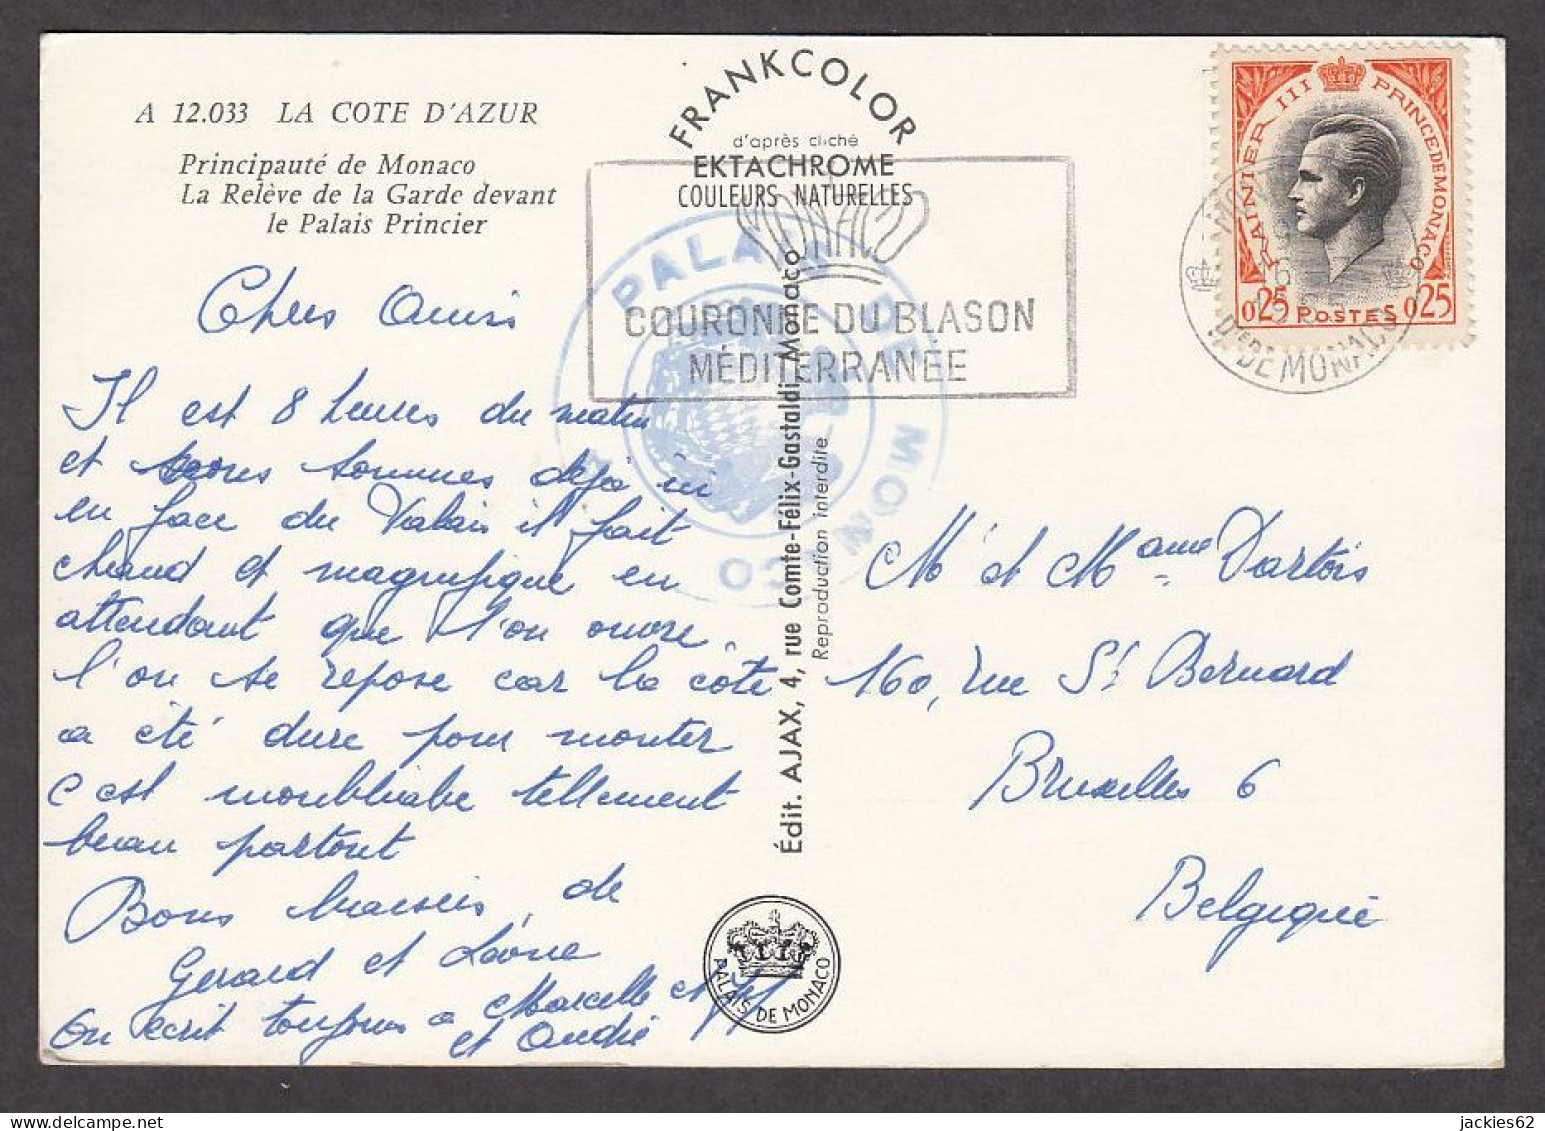 A 12.033 LA COTE D'AZUR
Principauté de Monaco
La Relève de la Garde devant
le Palais Princier
FRANKCOLOR
d'après cliché
EKTACHROME
COULEURS NATURELLES
MONACO
COURONNE DU BLASON
MÉDITERRANÉE
PALAIS DE MONACO
RAINIER III PRINCE DE MONACO
0,25 POSTES 0,25
DE MONACO
Chers Amis
Il est 8 heures du matin
et nous sommes dejà ici
en face du Palais il fait
chaud et magnifique en
attendant que l'on ouvre.
l'on se repose car la côte
a été dure pour monter
c'est inoubliable tellement
beau partout
Bons baisers de
Gerard et Léone
Marcelle et
et André
On écrit toujours a
Édit. AJAX, 4, rue Comte-Félix-Gastaldi, Monaco
Reproduction interdite
PALAIS DE MONACO
Mr et Mame Dartois
160, rue St Bernard
Bruxelles 6
Belgique
jackies62